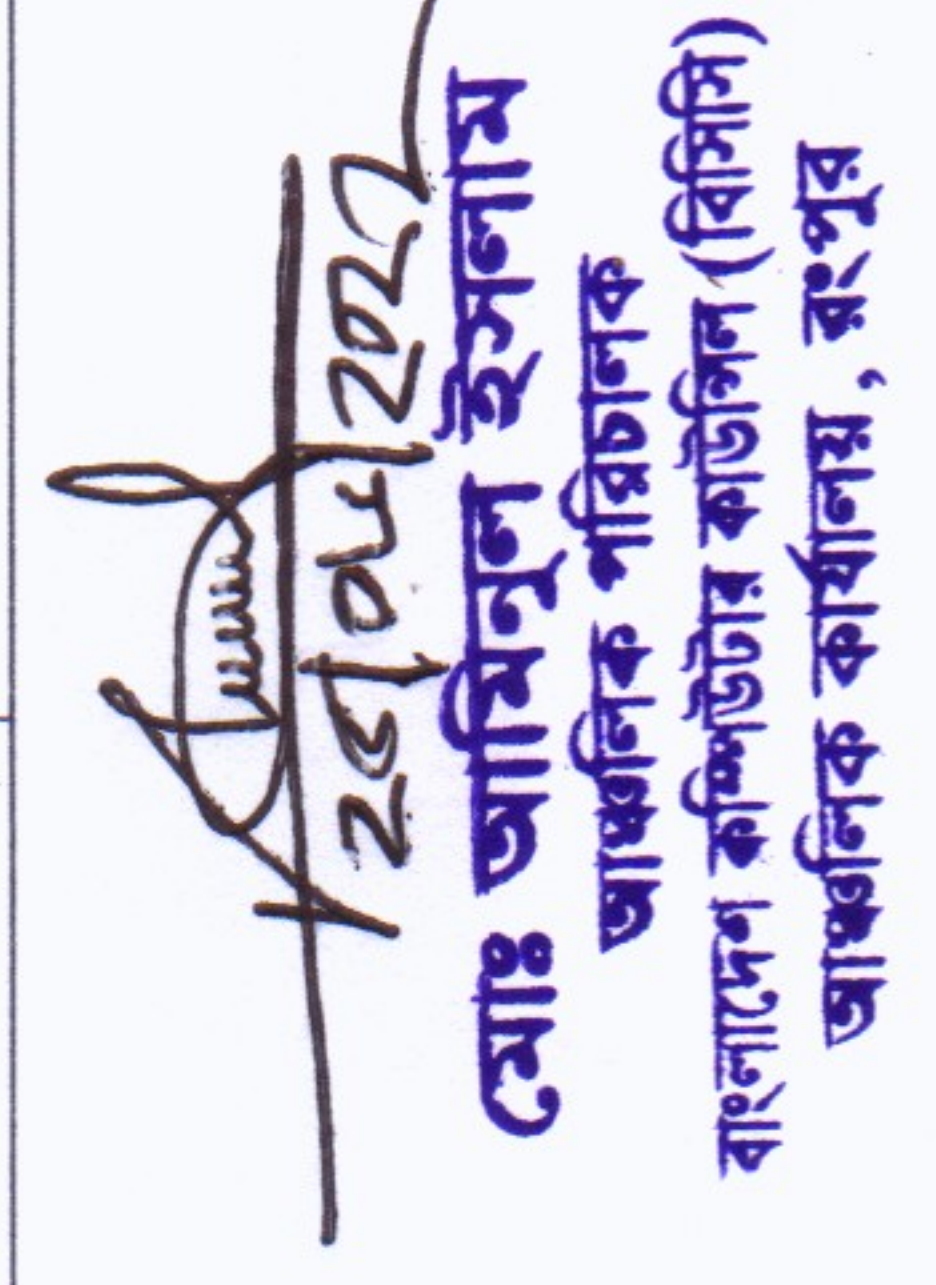 মোঃ আমিনুল ইসলাম
আঞ্চলিক পরিচালক
বাংলাদেশ কম্পিউটার কাউন্সিল (বিসিসি)
আঞ্চলিক কার্যালয়, রংপুর